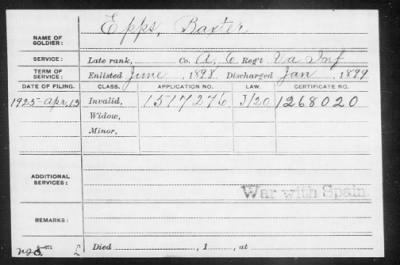 NAME OF SOLDIER: Epps, Baxter
SERVICE: Late rank, Co. A, 6 Reg't Va Inf
TERM OF SERVICE: Enlisted June, 1898. Discharged Jan, 1899
DATE OF FILING. CLASS. APPLICATION NO. LAW. CERTIFICATE NO.
1925-Apr, 13 Invalid, 1517276 J/20 1268020
Widow,
Minor,
ADDITIONAL SERVICES: War with Spain.
REMARKS:
Died , 1 , at